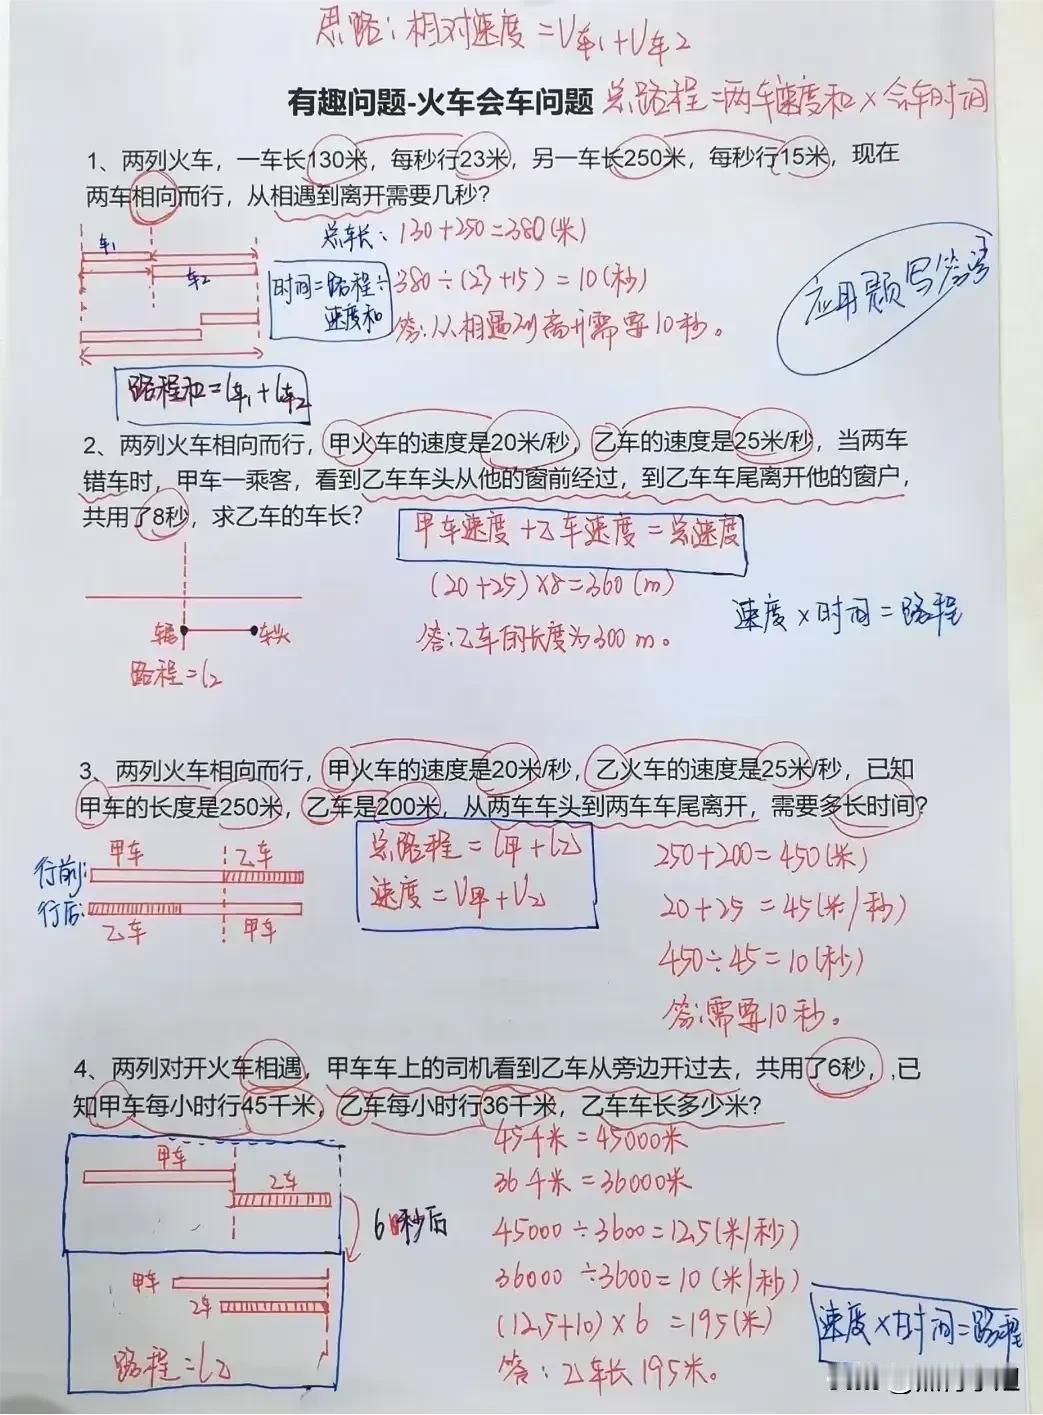 思路：相对速度=V车1+V车2
有趣问题-火车会车问题 总路程=两车速度和×会车时间
1、两列火车，一车长130米，每秒行23米，另一车长250米，每秒行15米，现在
两车相向而行，从相遇到离开需要几秒？
总车长：130+250=380(米)
车1
车2
时间=路程÷
速度和
380÷(23+15)=10(秒)
答：从相遇到离开需要10秒。
应用题写答语
路程和=l车1+l车2
2、两列火车相向而行，甲火车的速度是20米/秒，乙车的速度是25米/秒，当两车
错车时，甲车一乘客，看到乙车车头从他的窗前经过，到乙车车尾离开他的窗户，
共用了8秒，求乙车的车长？
甲车速度+乙车速度=总速度
(20+25)×8=360(m)
速度×时间=路程
车尾
车头
答：乙车的长度为300m。
路程=l乙
3、两列火车相向而行，甲火车的速度是20米/秒，乙火车的速度是25米/秒，已知
甲车的长度是250米，乙车是200米，从两车车头到两车车尾离开，需要多长时间？
行前：
甲车
乙车
行后：
乙车
甲车
总路程=l甲+l乙
速度=V甲+V乙
250+200=450(米)
20+25=45(米/秒)
450÷45=10(秒)
答：需要10秒。
4、两列对开火车相遇，甲车车上的司机看到乙车从旁边开过去，共用了6秒，,已
知甲车每小时行45千米，乙车每小时行36千米，乙车车长多少米？
甲车
乙车
6秒后
甲车
乙车
路程=l乙
45千米=45000米
36千米=36000米
45000÷3600=12.5(米/秒)
36000÷3600=10(米/秒)
(12.5+10)×6=195(米)
答：乙车长195米。
速度×时间=路程